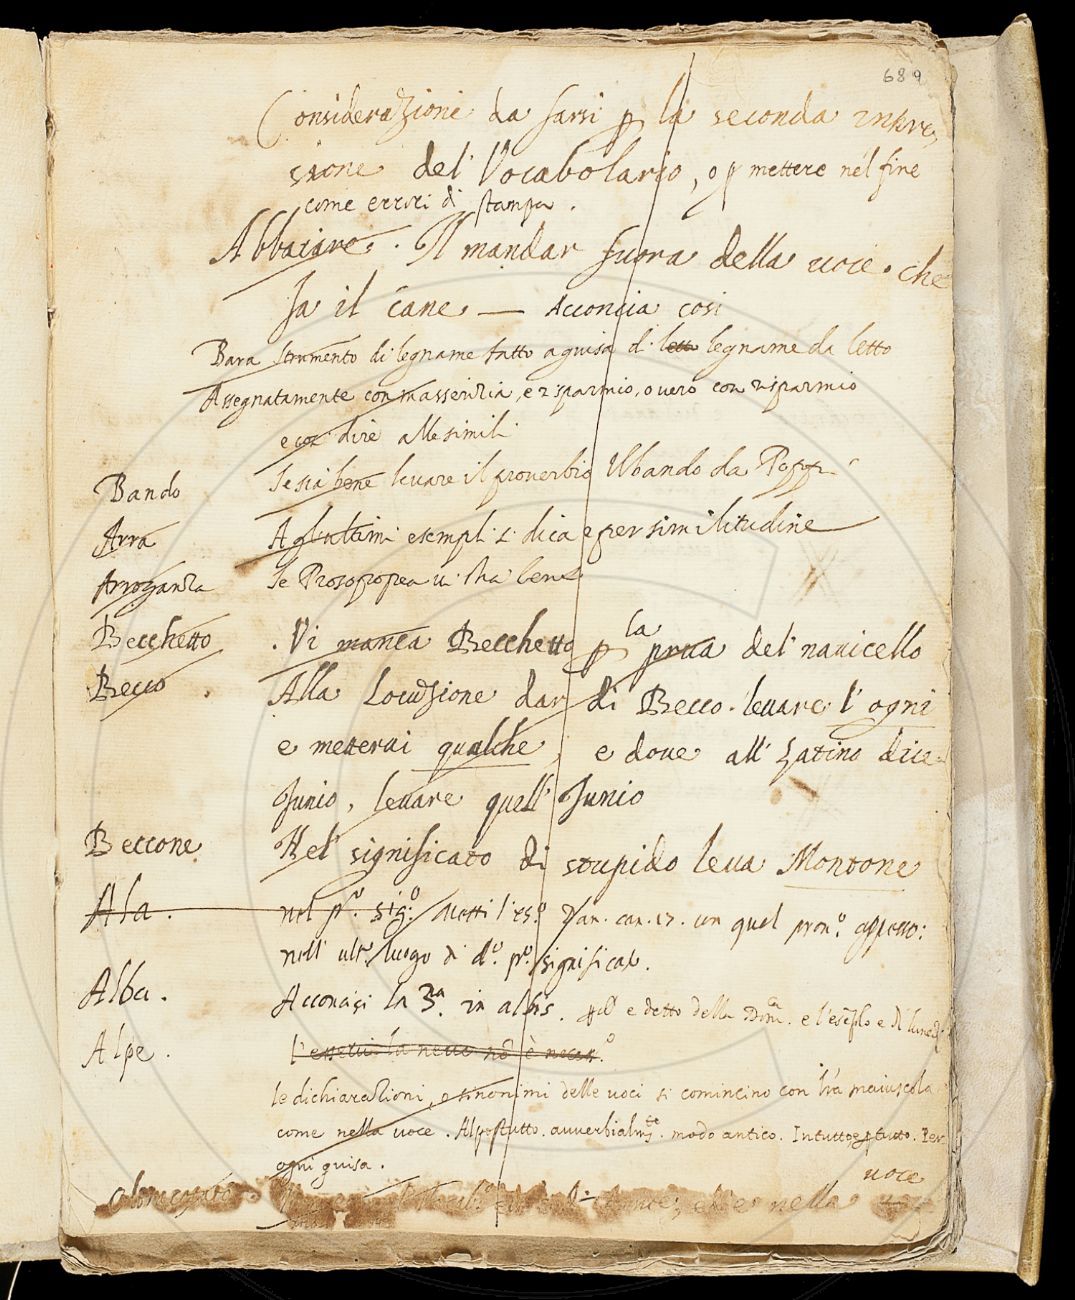 689
Considerazione da farsi p la seconda inpre,
sione del Vocabolario, o p mettere nel fine
come errori di stampa.
Abbaiare. Il mandar fuora della uoce. che
fa il cane — Acconcia cosi
Bara strumento di legname fatto a guisa di letto legname da letto
Assegnatamente con masserizia, e risparmio, o uero con risparmio
e cosi dire alle simili
Bando Se sia bene leuare il prouerbio Vbbando da Poppi
Arra A gl'ultimi esempli si dica e per similitudine
Arroganza Se Prosopopea ui sta bene
Becchetto . Vi manca Becchetto p la prua del nauicello
Becco . Alla Locuzione dar di Becco. leuare l'ogni
e metterui qualche, e doue all' Latino dice
Junio, leuare quell' Junio
Beccone Nel significato di stupido leua Montone
Ala . nel p.o sig.o metti l'es.o Dan. can. 17. con quel pron.o appresso:
nell' ult.o luogo di d.o p.o significat.
Alba . Acconcisi la 3.a in albis.
Alpe .
le dichiarazioni, o sinonimi delle uoci si comincino con l'ra maiuscola
come nella uoce. Alpostutto. auuerbialm.te modo antico. In tutto, e p tutto. Per
ogni guisa.
uoce
nella